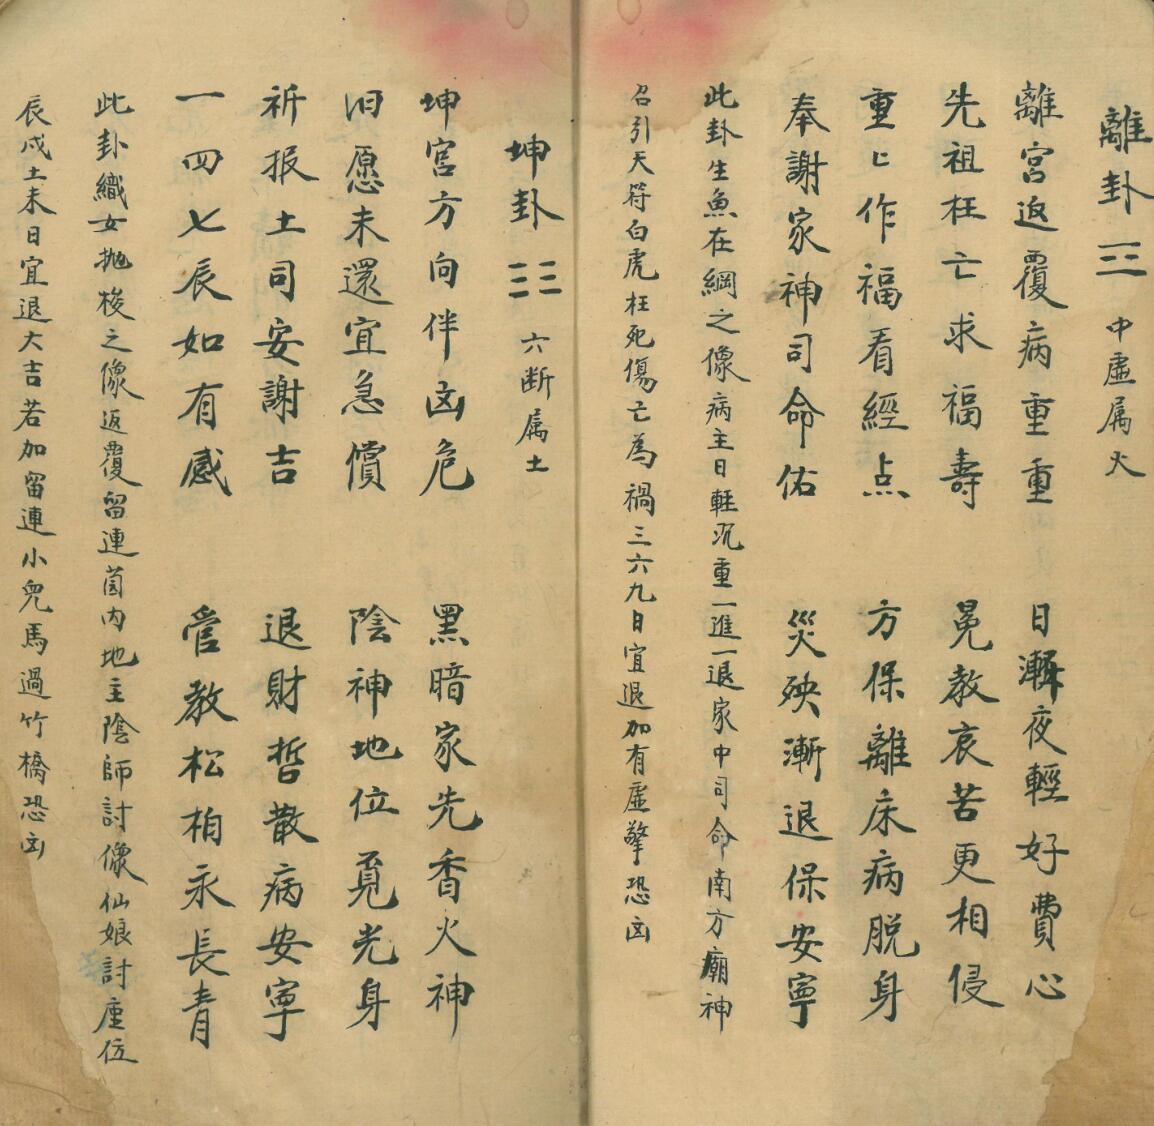 離卦 ☲ 中虛属火
離宮返覆病重重 日漸夜輕好費心
先祖枉亡求福壽 冤教哀苦更相侵
重〻作福看經点 方保離床病脱身
奉謝家神司命佑 災殃漸退保安寧
此卦生魚在綱之像病主日輕沉重一進一退家中司命南方廟神
召引天符白虎枉死傷亡為禍三六九日宜退加有虛擎恐凶
坤卦 ☷ 六断属土
坤宮方向伴凶危 黑暗家先香火神
旧愿未還宜急償 陰神地位覓光身
祈报土司安謝吉 退財暂散病安寧
一四七辰如有感 管教松柏永長青
此卦織女抛梭之像返覆留連茵内地主陰師討像仙娘討座位
辰戌土未日宜退大吉若加留連小兒馬過竹橋恐凶